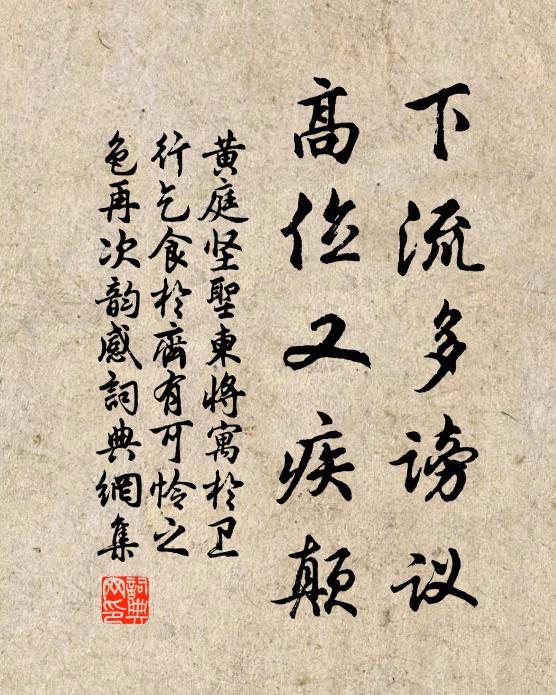 下流多谤议
高位又疾颠
黄庭坚圣东将寓於卫
行乞食於齐有可怜之
色再次韵感词典網集
詞典
网印